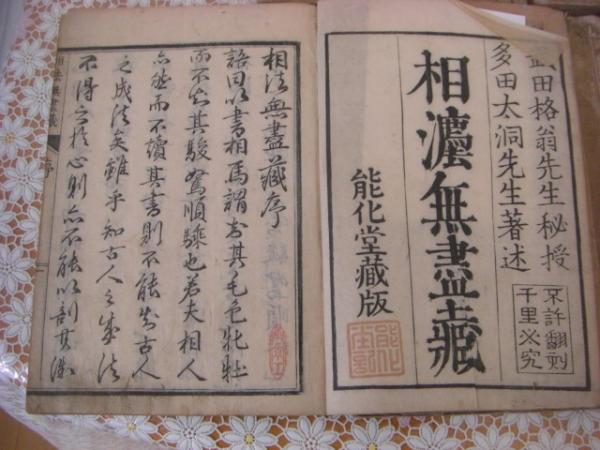 武田格翁先生秘授
多田太洞先生著述
不許翻刻
千里必究
相灋無盡藏
能化堂藏版
相法無盡藏序
語曰以書相馬謂知其毛色牝牡
而不知其駿駑順騄也若夫相人
亦然而不讀其書則不能知古人
之成法矣雖乎知古人之成法
不得之於心則亦不能以剖其
序